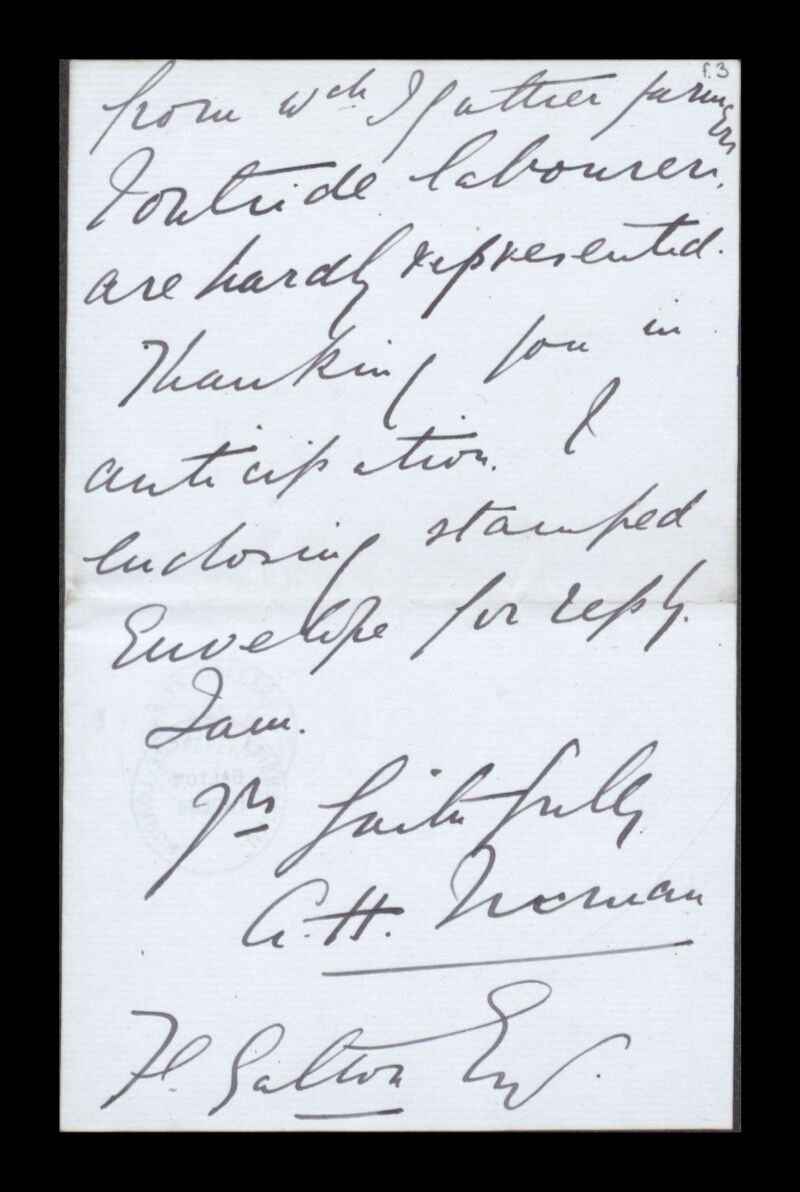 f.3
from wch I gather farm
ers
& outside labourers,
are hardly represented.
Thanking you in
anticipation. &
enclosing stamped
Envelope for reply.
I am.
Yrs faithfully
G. H.
F. Galton Esq.
GALTON